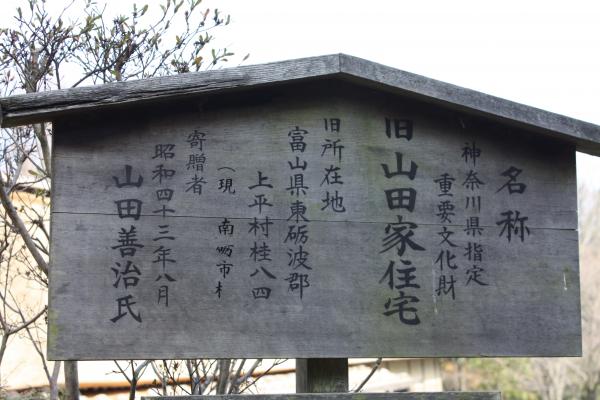 名称
神奈川県指定
重要文化財
旧山田家住宅
旧所在地
富山県東砺波郡
上平村桂八四
(現 南砺市
寄贈者
昭和四十三年八月
山田善治氏